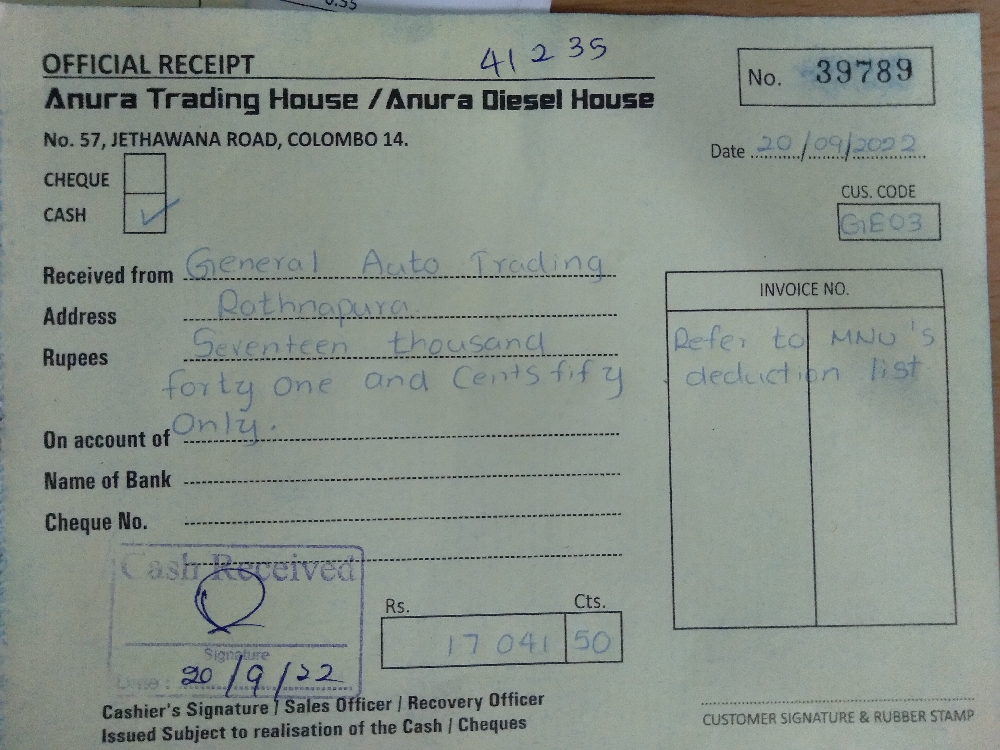 0.55
OFFICIAL RECEIPT
41235
No. 39789
Anura Trading House / Anura Diesel House
No. 57, JETHAWANA ROAD, COLOMBO 14.
Date 20/09/2022
CHEQUE
CASH ✓
CUS. CODE
GE03
Received from General Auto Trading
Address Rathnapura.
Rupees Seventeen thousand
forty one and Cents fify
Only.
On account of
Name of Bank
Cheque No.
INVOICE NO.
Refer to MNU's
deduction list
Cash Received
Signature
Date: 20/9/22
Rs. Cts.
17 041 50
Cashier's Signature / Sales Officer / Recovery Officer
Issued Subject to realisation of the Cash / Cheques
CUSTOMER SIGNATURE & RUBBER STAMP